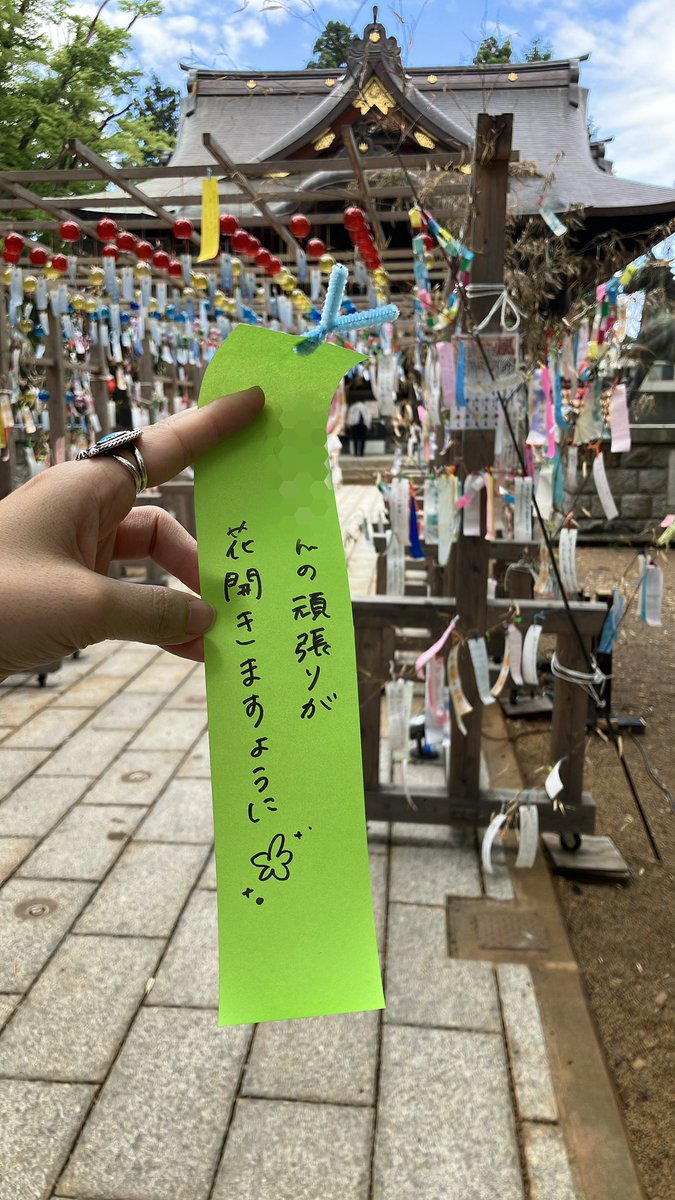 んの頑張りが
花開きますように